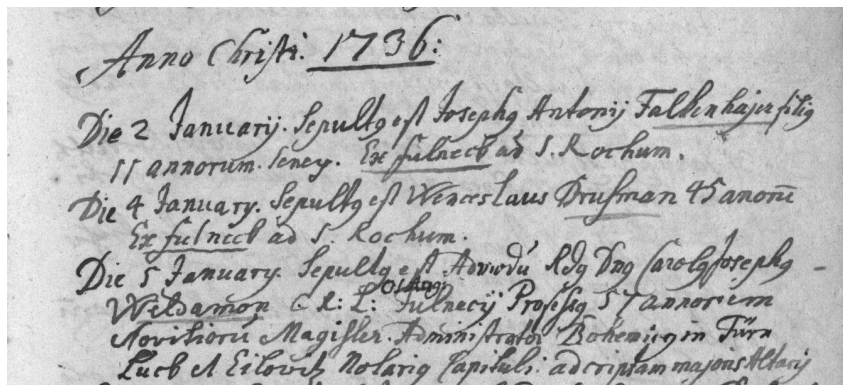 Anno Christi. 1736:
Die 2 January. Sepultq est Josephq Antonij Falkenhajer filiq
11 annorum. Ex fulneck ad S. Rochum.
Die 4 January. Sepultq est Wenceslaus Drusman 45 anorū
Ex fulneck ad S. Rochum.
Die 5 January. Sepultq est Rdq Dnq Carolq Josephq
Weldamon C: R: L: Fulnecij Professq 57 annorum
Novitiorū Magister. Administrator Bohemicq in Türn
Luck et Eilovitz Notariq Capituli. ad criptam majoris Altaris